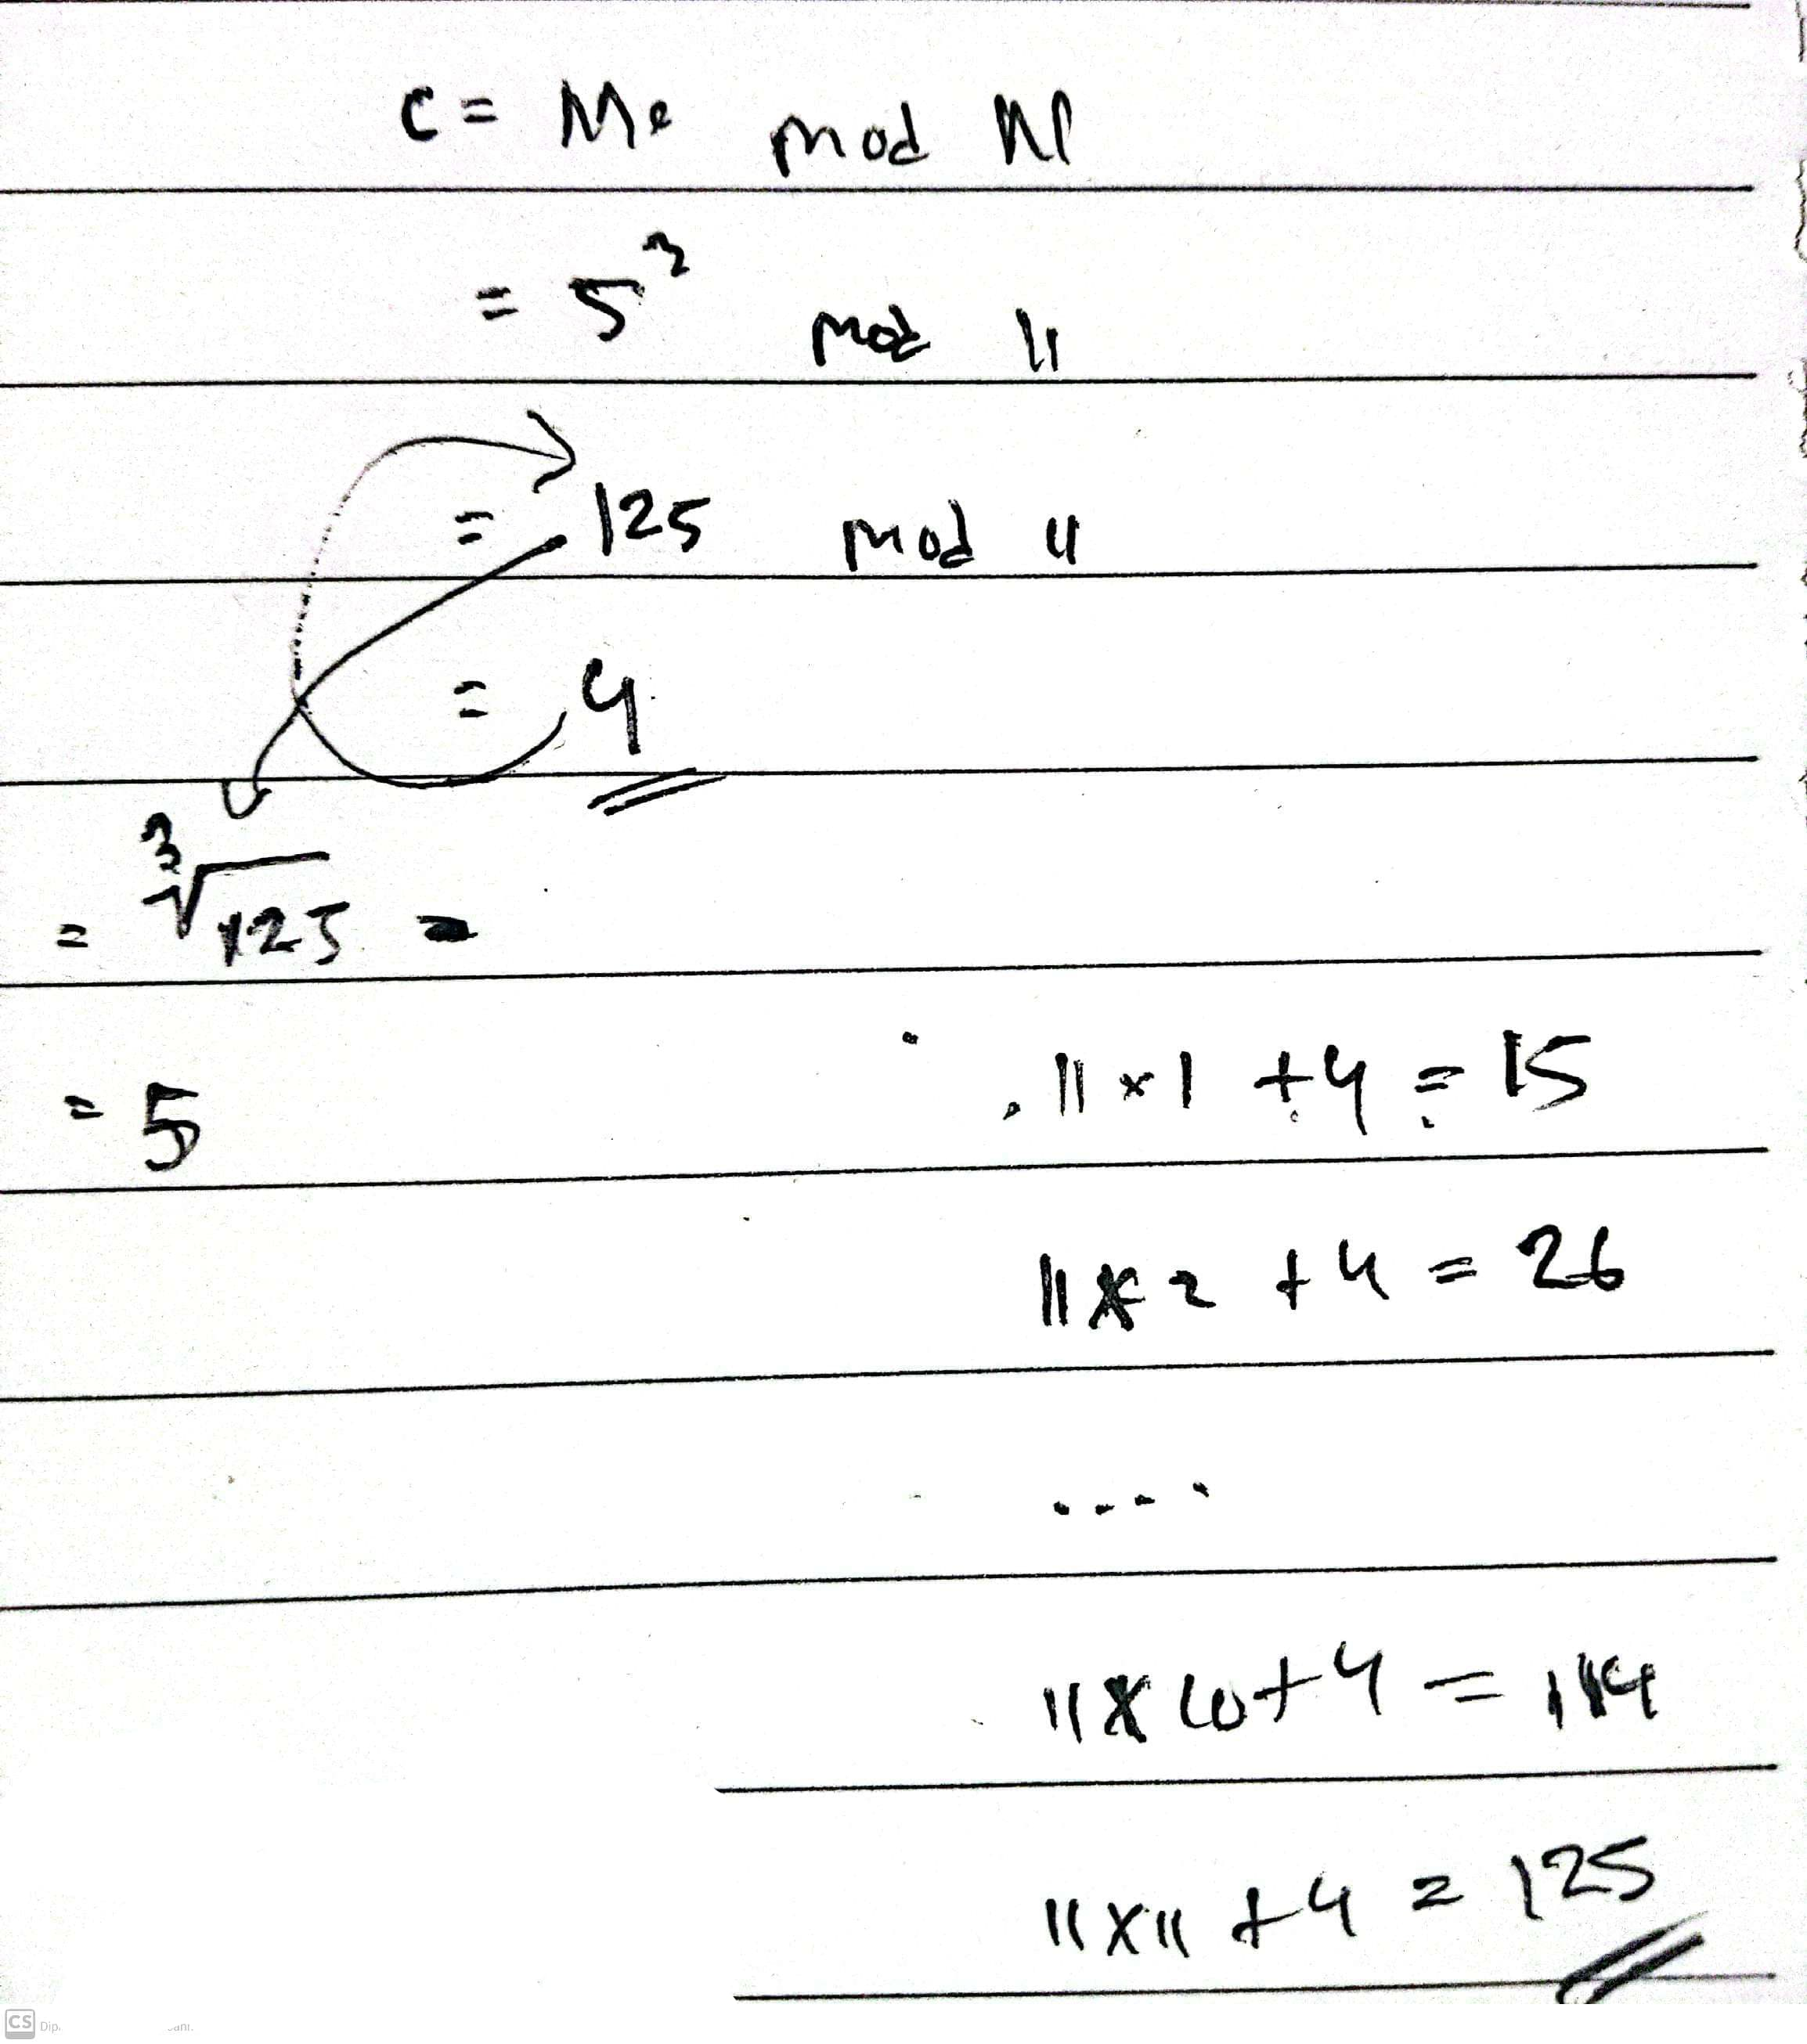 C = Me mod N
= 5³ mod 11
= 125 mod 11
= 4
= ³√125 =
= 5
11 × 1 + 4 = 15
11 × 2 + 4 = 26
....
11 × 10 + 4 = 114
11 × 11 + 4 = 125
CS